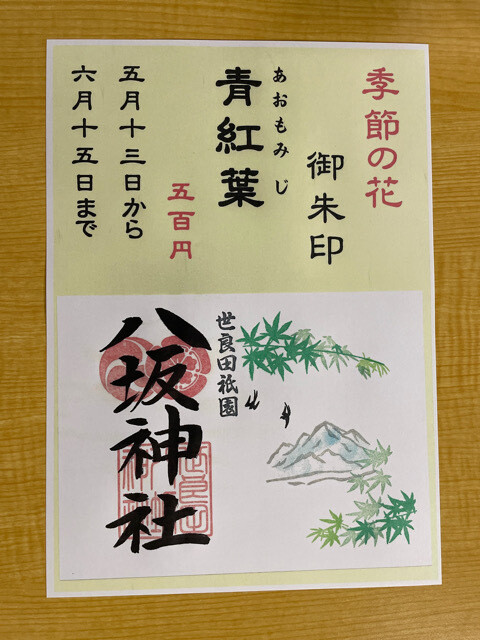 季節の花
御朱印
あおもみじ
青紅葉
五百円
五月十三日から
六月十五日まで
世良田祇園
八坂神社